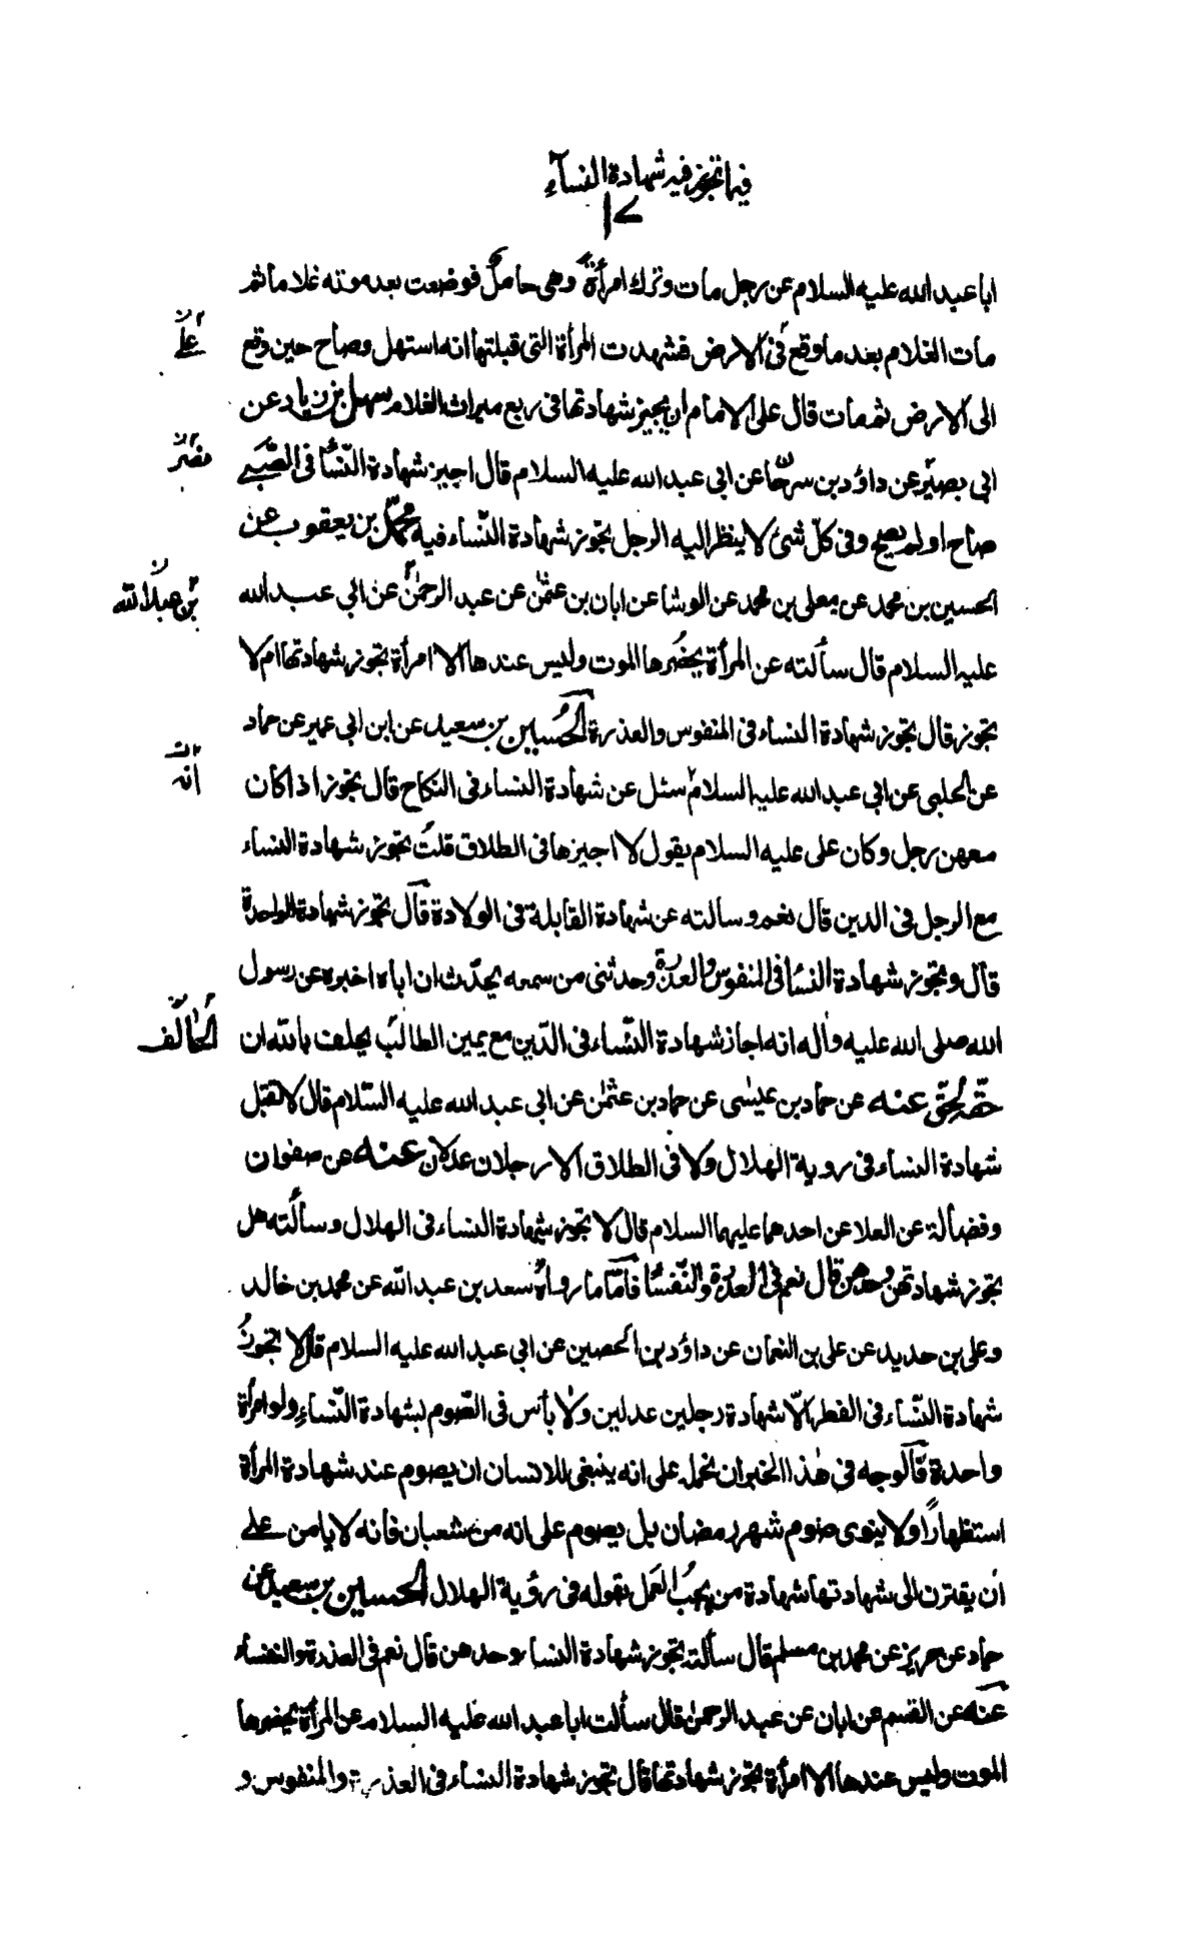 فيما تجوز فيه شهادة النساء
١٢
ابا عبد الله عليه السلام عن رجل مات وترك امرأة وهي حامل فوضعت بعد موته غلاما ثم
مات الغلام بعد ما وقع في الارض فشهدت المرأة التي قبلتها انه استهل وصاح حين وقع
على
الى الارض ثم مات قال على الامام ان يجيز شهادتها في ربع ميراث الغلام سهل بن زياد عن
ابي بصير عن داؤد بن سرحان عن ابي عبد الله عليه السلام قال اجيز شهادة النساء في الصبي
نصر
صاح او لم يصح وفي كل شئ لا ينظر اليه الرجل تجوز شهادة النساء فيه محمد بن يعقوب عن
الحسين بن محمد عن معلى بن محمد عن الوشا عن ابان بن عثمن عن عبد الرحمن عن ابي عبد الله
بن عبد الله
عليه السلام قال سألته عن المرأة يحضرها الموت وليس عندها الا امرأة تجوز شهادتها ام لا
تجوز قال تجوز شهادة النساء في المنفوس والعذرة الحسين بن سعيد عن ابن ابي عمير عن حماد
عن الحلبي عن ابي عبد الله عليه السلام سئل عن شهادة النساء في النكاح قال تجوز اذا كان
انه
معهن رجل وكان علي عليه السلام يقول لا اجيزها في الطلاق قلت تجوز شهادة النساء
مع الرجل في الدين قال نعم وسالته عن شهادة القابلة في الولادة قال تجوز شهادة الواحدة
قال وتجوز شهادة النساء في المنفوس والعذرة وحدثني من سمعه يحدث ان اباه اخبره عن رسول
الله صلى الله عليه واله انه اجاز شهادة النساء في الدين مع يمين الطالب يحلف بالله ان
حقه لحق عنه عن حماد بن عيسى عن حماد بن عثمن عن ابي عبد الله عليه السلام قال لا تقبل
شهادة النساء في روية الهلال ولا في الطلاق الا رجلان عدلان عنه عن صفوان
وفضالة عن العلا عن احدهما عليهما السلام قال لا تجوز شهادة النساء في الهلال وسألته هل
تجوز شهادتهن وحدهن قال نعم في العذرة والنفساء فاما ما رواه سعد بن عبد الله عن محمد بن خالد
وعلي بن حديد عن علي بن النعمان عن داؤد بن الحصين عن ابي عبد الله عليه السلام قال لا تجوز
شهادة النساء في الفطر الا شهادة رجلين عدلين ولا بأس في الصوم بشهادة النساء ولو امرأة
واحدة فالوجه في هذا الخبر ان نحمله على انه ينبغي للانسان ان يصوم عند شهادة المرأة
استظهارا ولا ينوى صوم شهر رمضان بل يصوم على انه من شعبان فانه لا يامن على
ان يقترن الى شهادتها شهادة من يجب العمل بقوله في رؤية الهلال الحسين بن سعيد عن
حماد عن حريز عن محمد بن مسلم قال سألته تجوز شهادة النساء وحدهن قال نعم في العذرة والنفساء
عنه عن القسم عن ابان عن عبد الرحمن قال سألت ابا عبد الله عليه السلام عن المرأة يحضرها
الموت وليس عندها الا امرأة تجوز شهادتها قال تجوز شهادة النساء في العذرة والمنفوس و